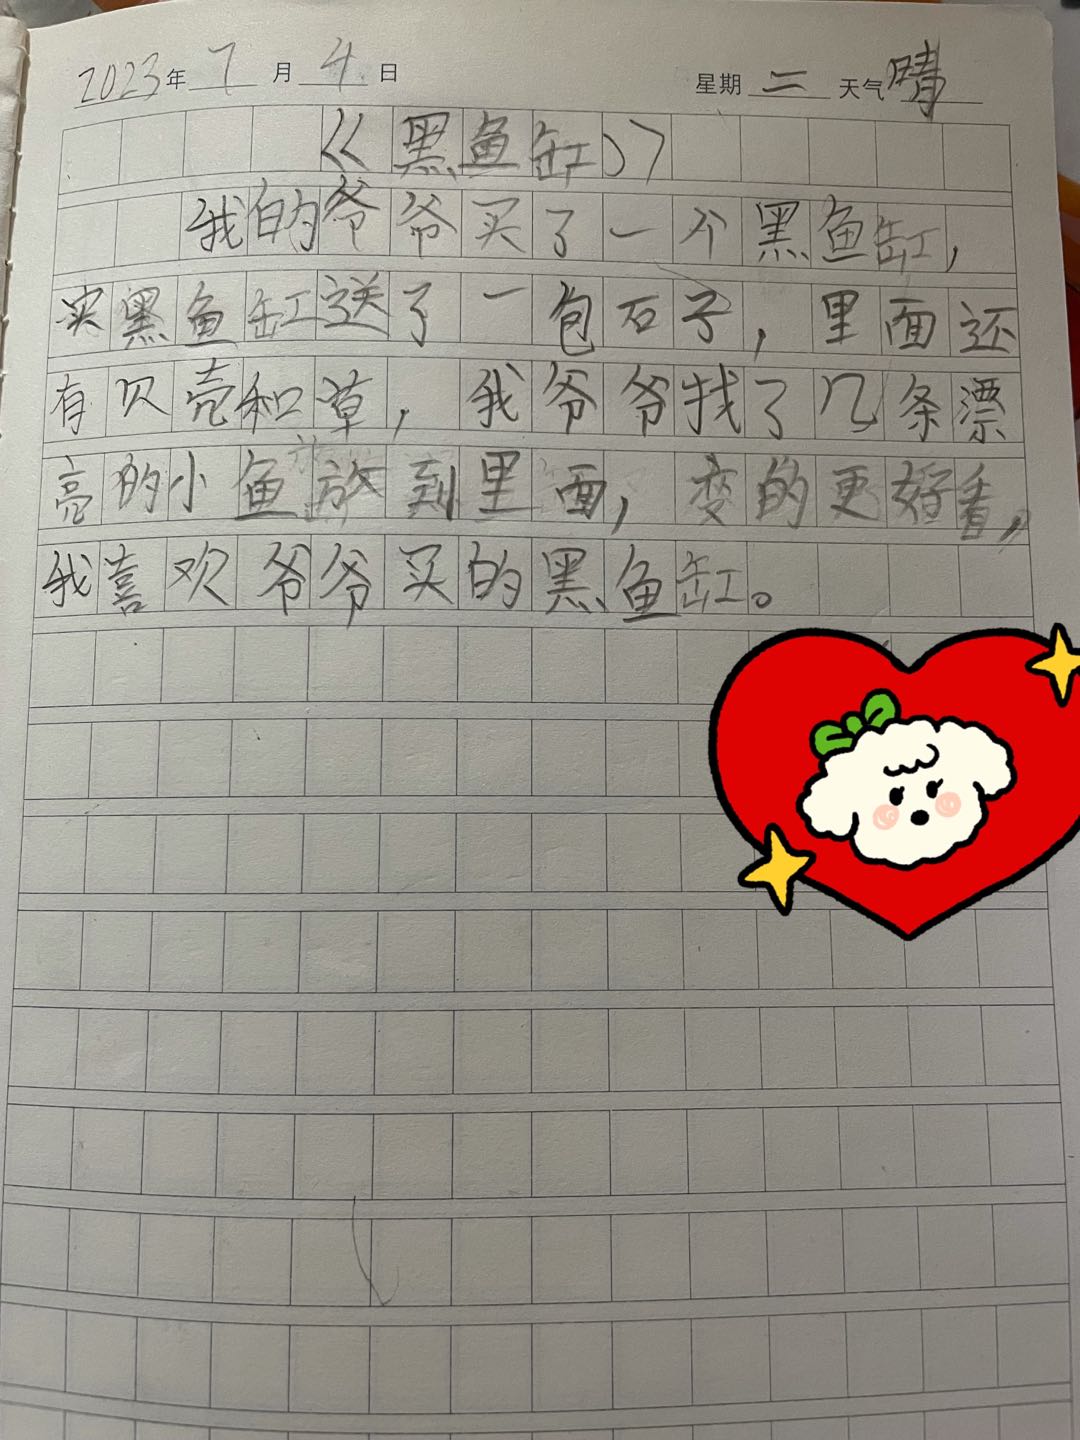 2023年7月4日 星期二 天气晴
《黑鱼缸》
我的爷爷买了一个黑鱼缸,
买黑鱼缸送了一包石子,里面还
有贝壳和草,我爷爷找了几条漂
亮的小鱼放到里面,变的更好看,
我喜欢爷爷买的黑鱼缸。